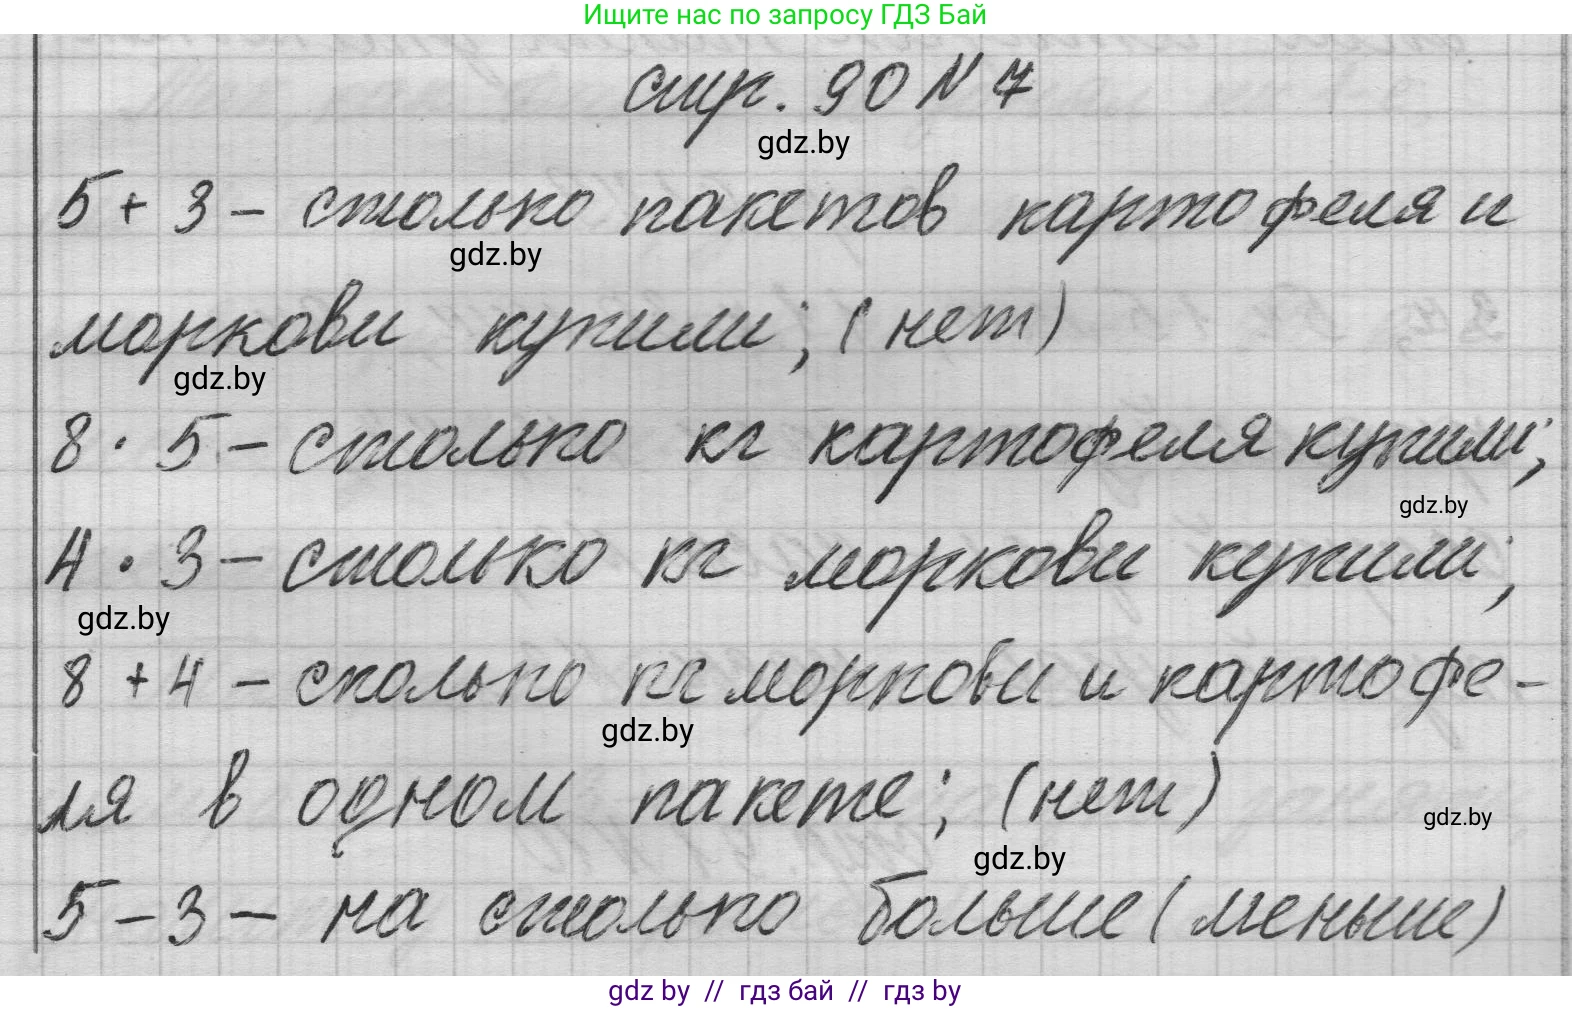 Ищите нас по запросу ГДЗ Бай
стр. 90 N 7
gdz.by
5 + 3 – столько пакетов картофеля и
gdz.by
моркови купили; (нет)
gdz.by
8 · 5 – столько кг картофеля купили;
gdz.by
4 · 3 – столько кг моркови купили;
gdz.by
8 + 4 – сколько кг моркови и картофе-
gdz.by
ля в одном пакете; (нет)
gdz.by
gdz.by
5 – 3 – на столько больше (меньше)
gdz by // гдз бай // гдз by